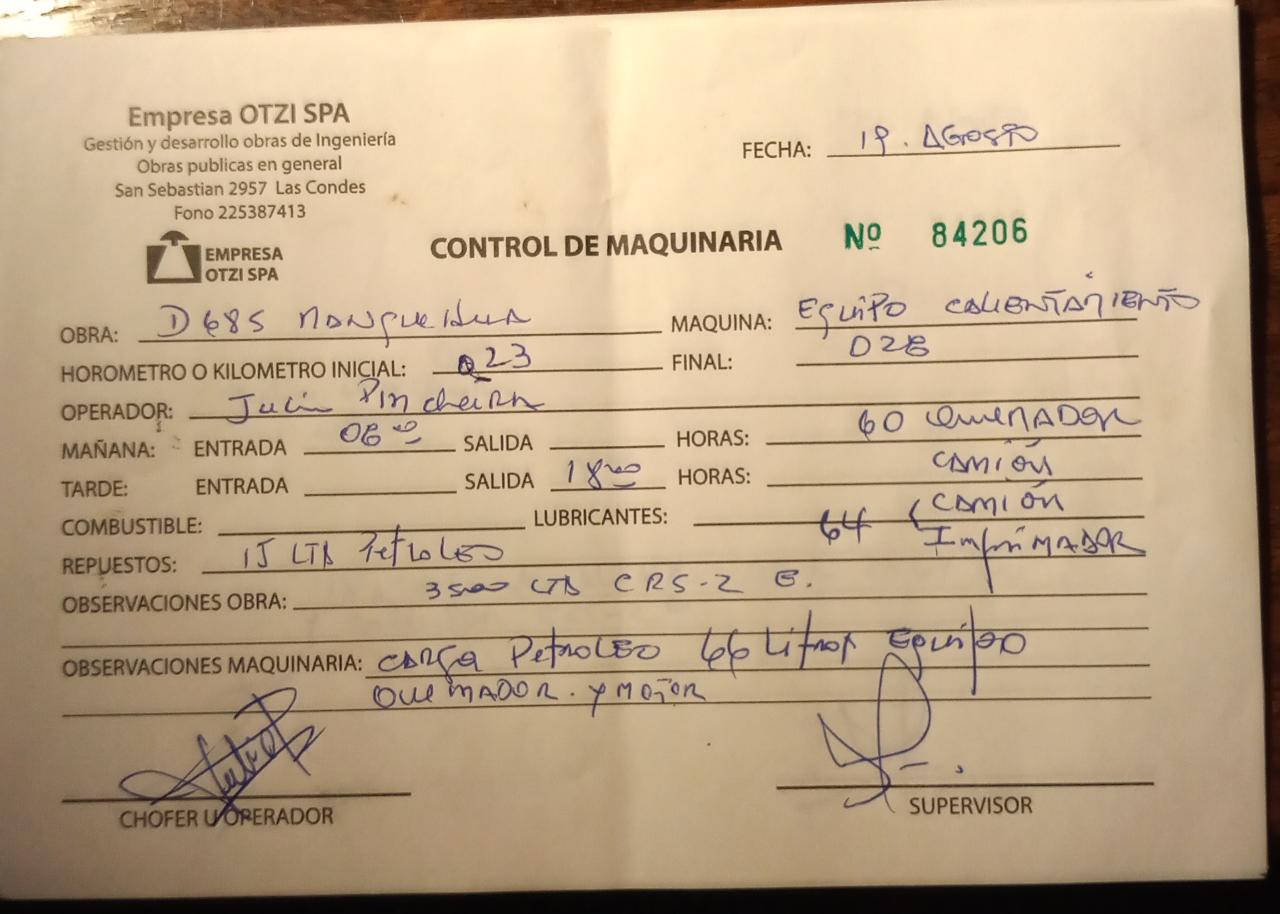 Empresa OTZI SPA
Gestión y desarrollo obras de Ingeniería
Obras publicas en general
San Sebastian 2957 Las Condes
Fono 225387413
EMPRESA
OTZI SPA
FECHA: 19. AGOSTO
CONTROL DE MAQUINARIA Nº 84206
OBRA: D685 MAQUINA: EQUIPO CALIENTAMIENTO
HOROMETRO O KILOMETRO INICIAL: 023 FINAL: 028
OPERADOR: Pincheira
MAÑANA: ENTRADA 08 00 SALIDA HORAS: 60 QUEMADOR
CAMIÓN
TARDE: ENTRADA SALIDA 18 00 HORAS:
COMBUSTIBLE: LUBRICANTES: 64 CAMIÓN
IMPRIMADOR
REPUESTOS: 15 LTS PETROLEO
OBSERVACIONES OBRA: 3500 LTS CRS-2 E.
OBSERVACIONES MAQUINARIA: CARGA PETROLEO 66 Litros EQUIPO
QUEMADOR. Y MOTOR
CHOFER U OPERADOR
SUPERVISOR